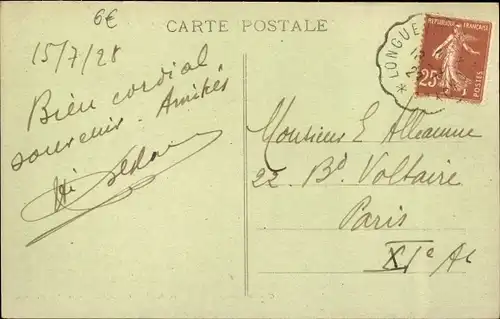 6€
CARTE POSTALE
15/7/28
Bien cordial
souvenir. Amitiés
LONGUE
REPUBLIQUE FRANÇAISE
25c
POSTES
Monsieur E
22. Bd Voltaire
Paris
XIe Ar